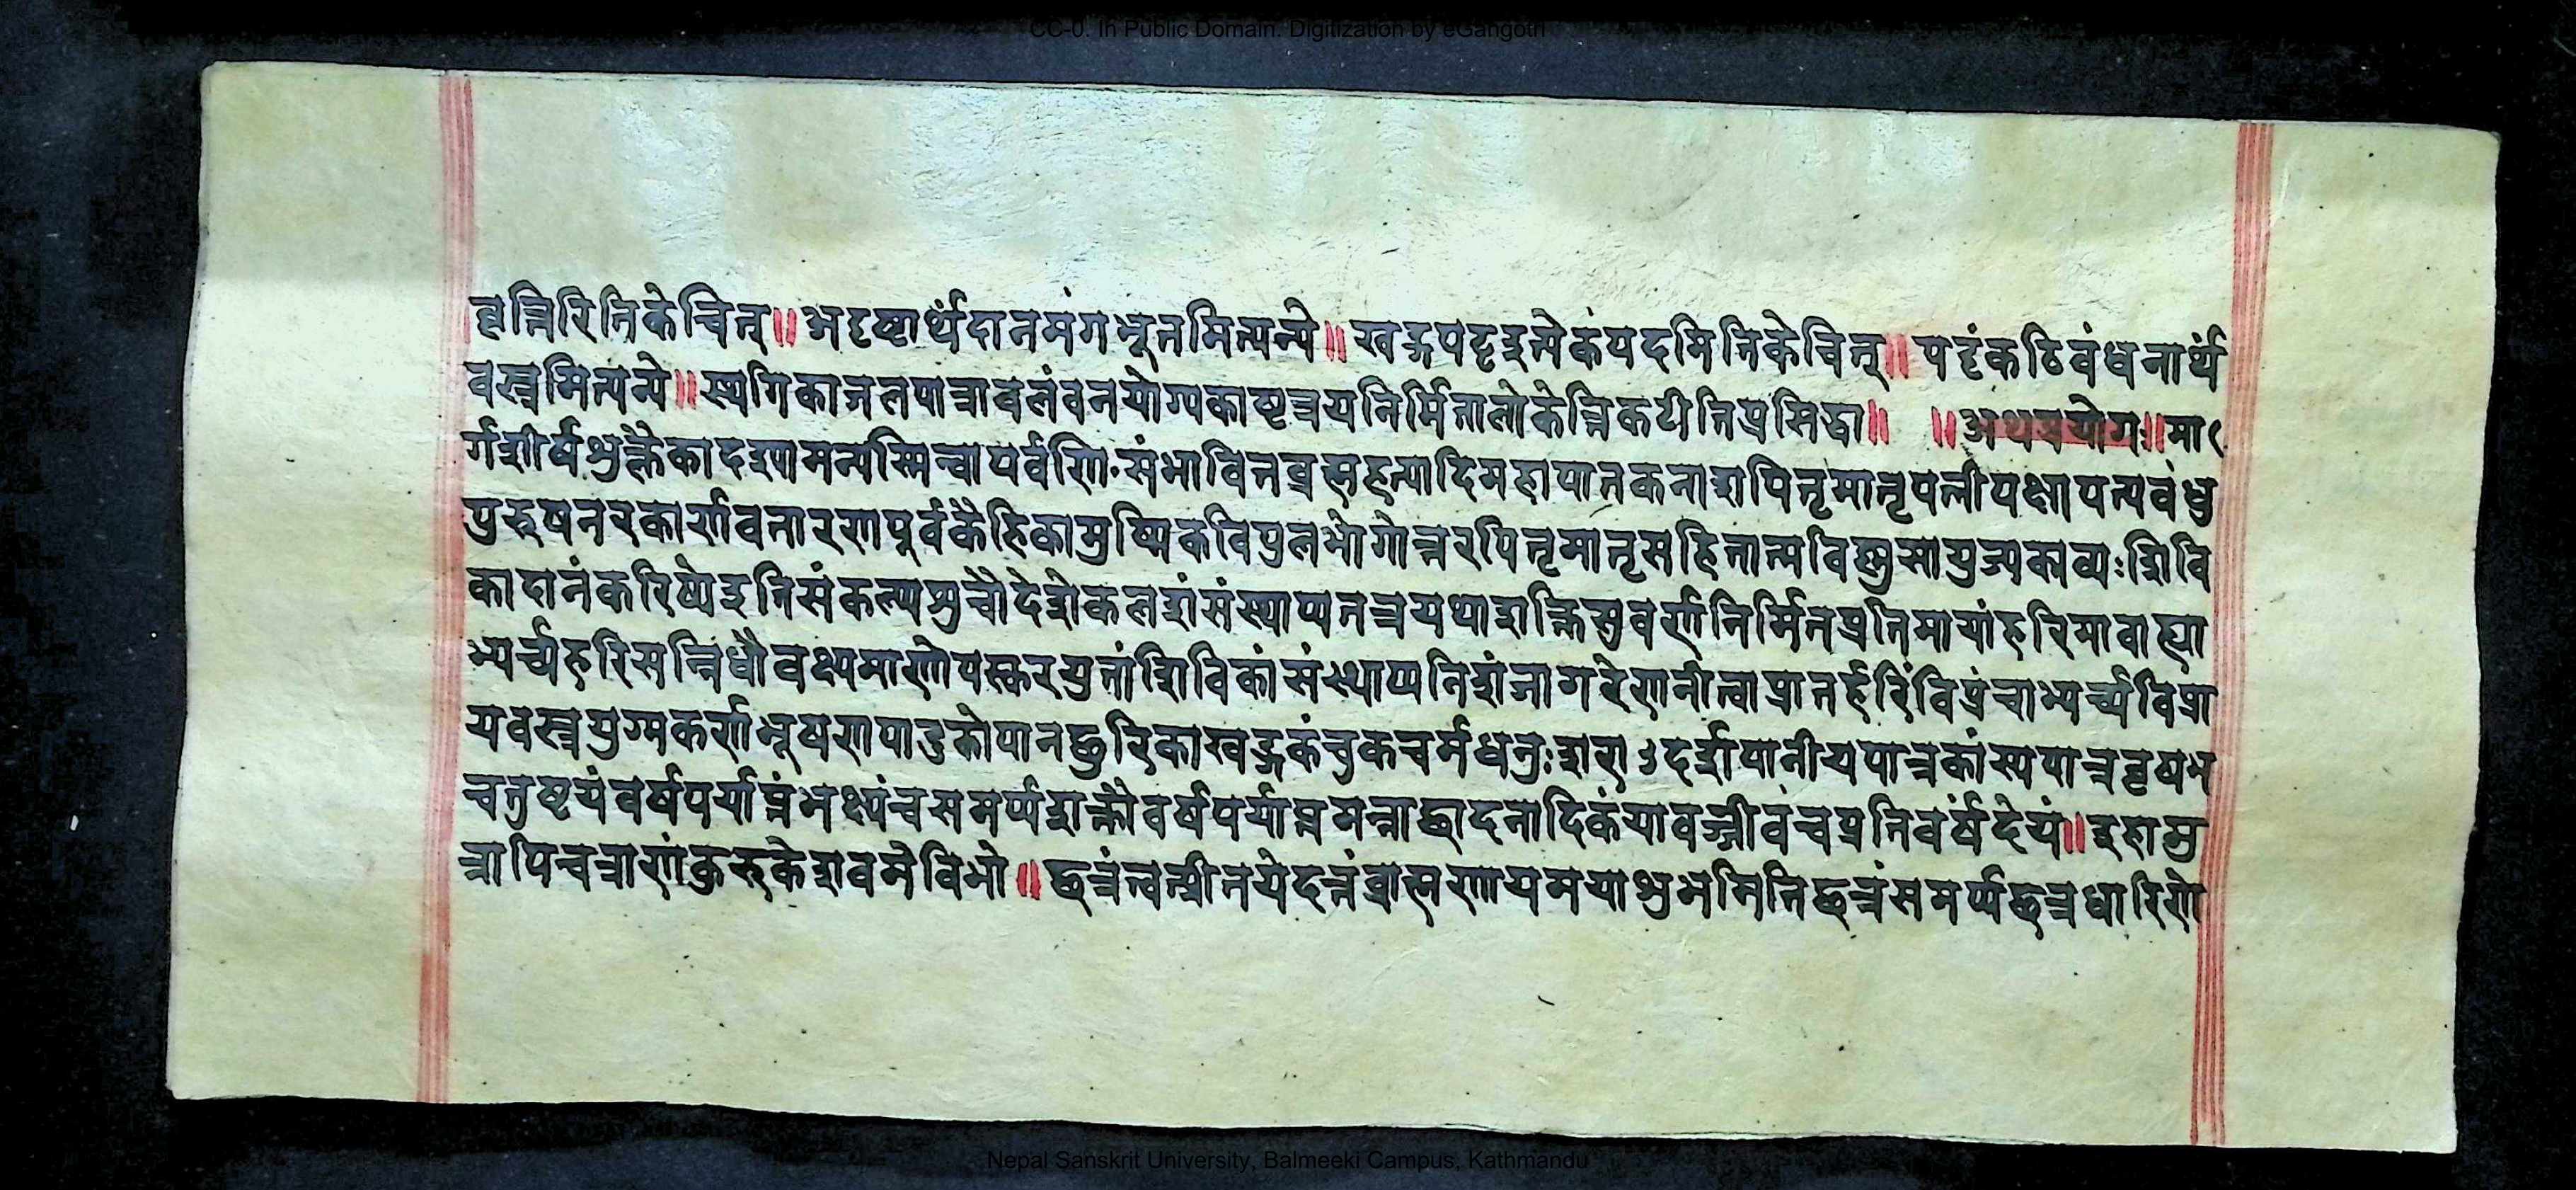 CC-0. In Public Domain. Digitization by eGangotri
द्वृत्तिरितिकेचित्॥अदृष्टार्थंदानमंगभूतमित्यन्ये॥खड्गपट्टइत्येकंपदमितिकेचित्॥पट्टंकटिबंधनार्थं
वस्त्रमित्यन्ये॥स्थगिकाजलपात्रावलंबनयोग्यकाष्टत्रयनिर्मितालोकेत्रिकटीतिप्रसिद्धा॥ ॥अथप्रयोगः॥मा
र्गशीर्षशुक्लैकादश्यामन्यस्मिन्वापर्वणिसंभावितब्रह्महत्यादिमहापातकनाशपितृमातृपत्नीपक्षापत्यबंधु
पुरुषनरकार्णवतारणपूर्वकैहिकामुष्मिकविपुलभोगोत्तरपितृमातृसहितात्मविष्णुसायुज्यकाम्यःशिवि
कादानंकरिष्येइतिसंकल्प्यशुचौदेशेकलशंसंस्थाप्यतत्रयथाशक्तिसुवर्णनिर्मितप्रतिमायांहरिमावाह्या
भ्यर्च्यहरिसन्निधौवक्ष्यमाणोपस्करयुतांशिविकांसंस्थाप्यनिशांजागरेणनीत्वाप्रातर्हरिंविप्रंचाभ्यर्च्यविप्रा
यवस्त्रयुग्मकर्णभूषणपादुकोपानछुरिकाखड्गकंचुकचर्मधनुःशरा३दर्शपानीयपात्रकांस्यपात्रद्वयभ
चतुष्टयंवर्षपर्याप्तंभक्ष्यंचसमर्प्यशक्तौवर्षपर्याप्तमन्नाछादनादिकंयावज्जीवंचप्रतिवर्षंदेयं॥इहामु
त्रापिचत्राणंकुरुकेशवमेविभो॥छत्रंत्वत्प्रीतयेदत्तंब्राह्मणायमयाशुभमितिछत्रंसमर्प्यछत्रधारिणे
Nepal Sanskrit University, Balmeeki Campus, Kathmandu